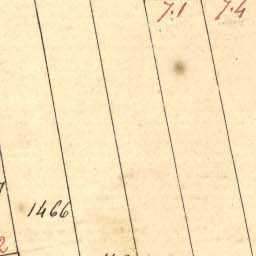 7.1 7.4
1466
2